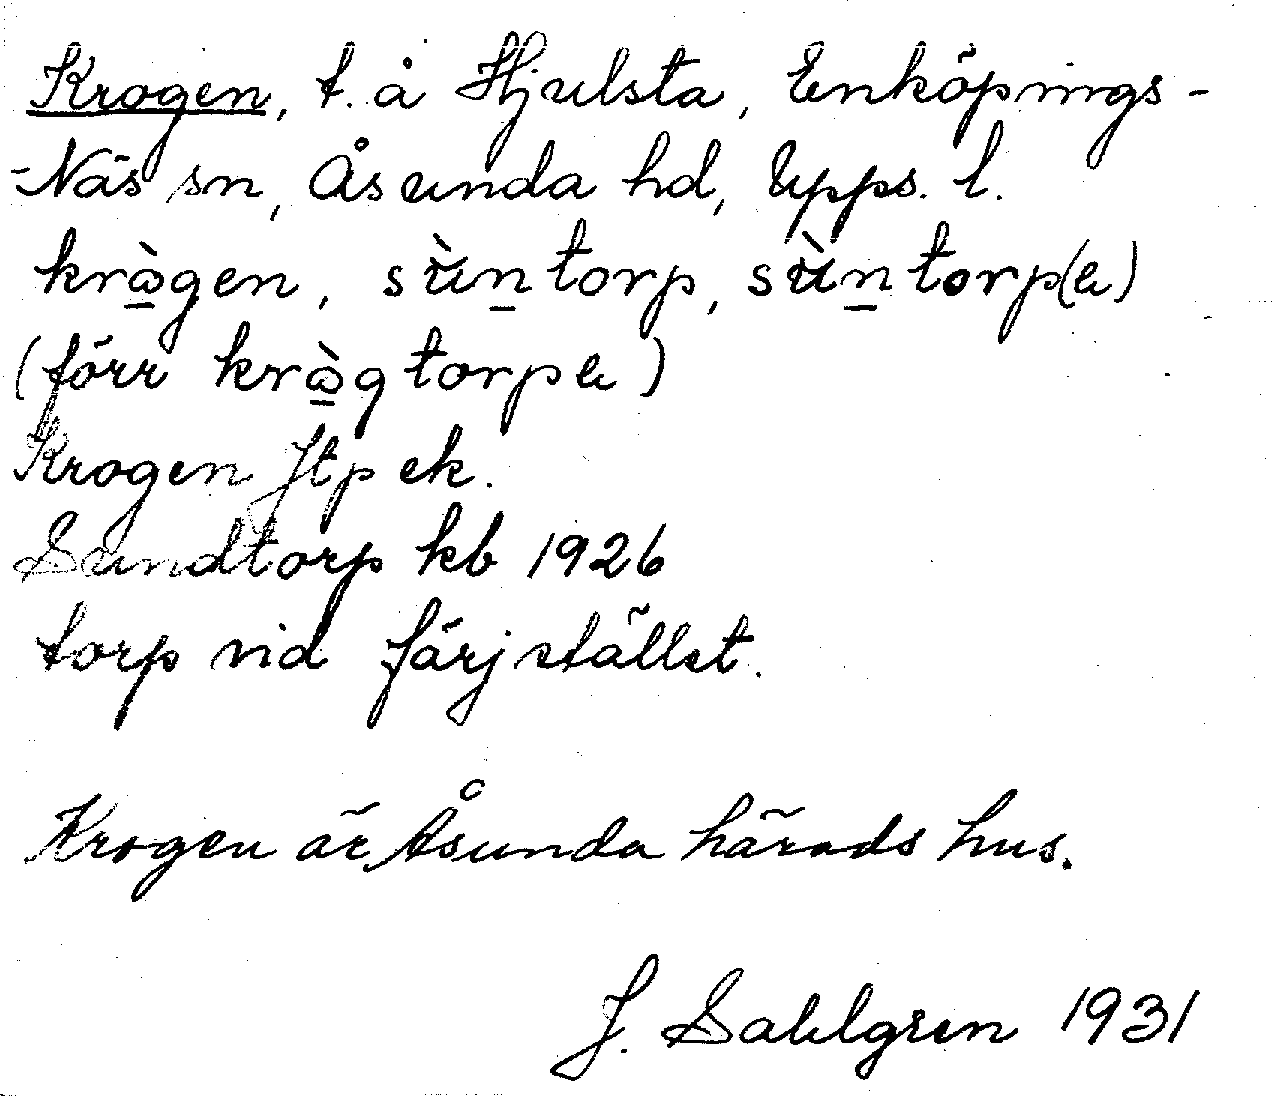 Krogen, t. å Hjulsta, Enköpings-
-Näs sn, Åsunda hd, Upps. l.
krɷ̱̀gen, sɯ̀n̠torp, sɯ̀n̠torp(a)
(förr krɷ̱̀gtorpa)
Krogen Jtp ek.
Sundtorp kb 1926
torp vid färjstället.
Krogen är Åsunda härads hus.
J. Sahlgren 1931